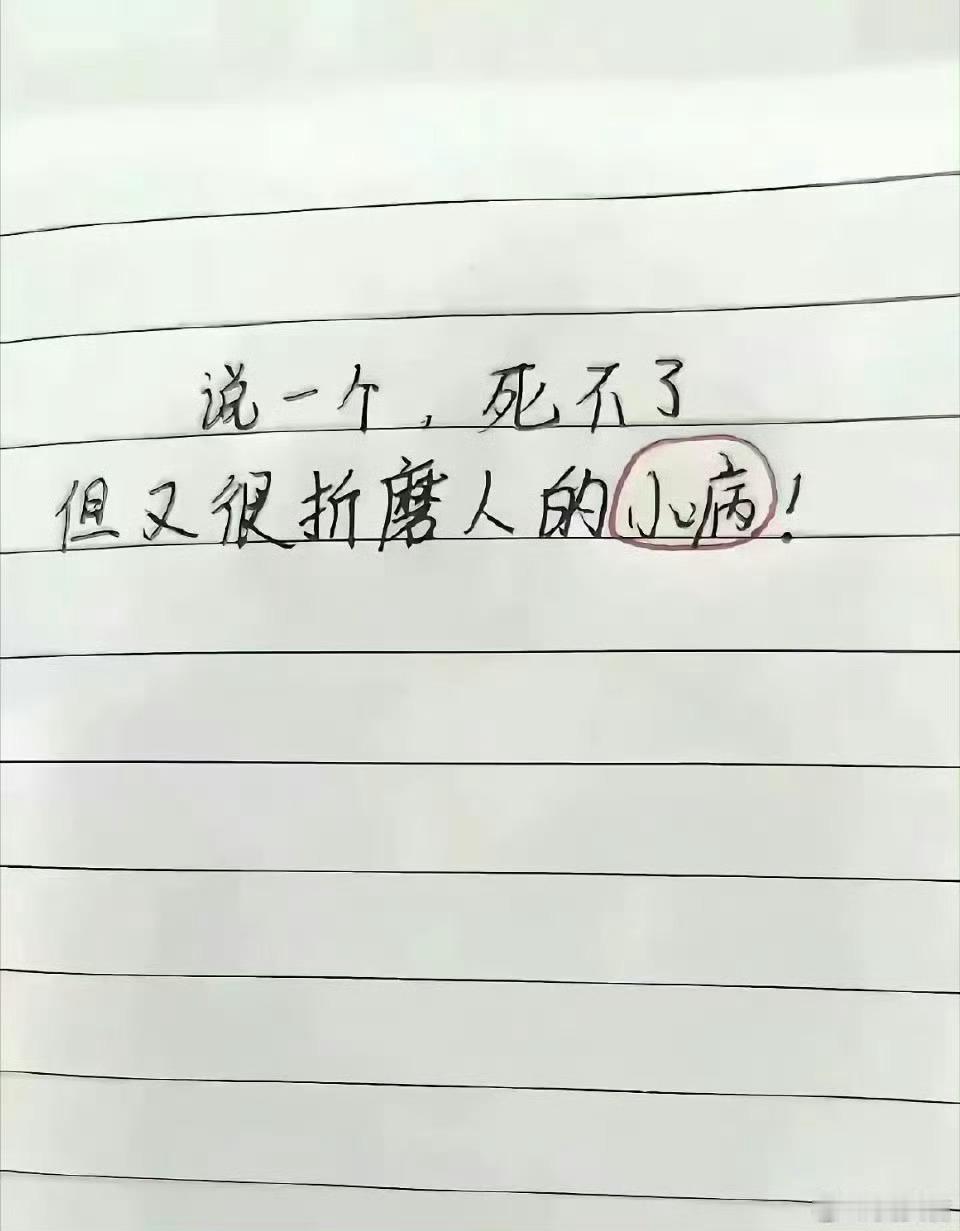 说一个，死不了
但又很折磨人的小病！